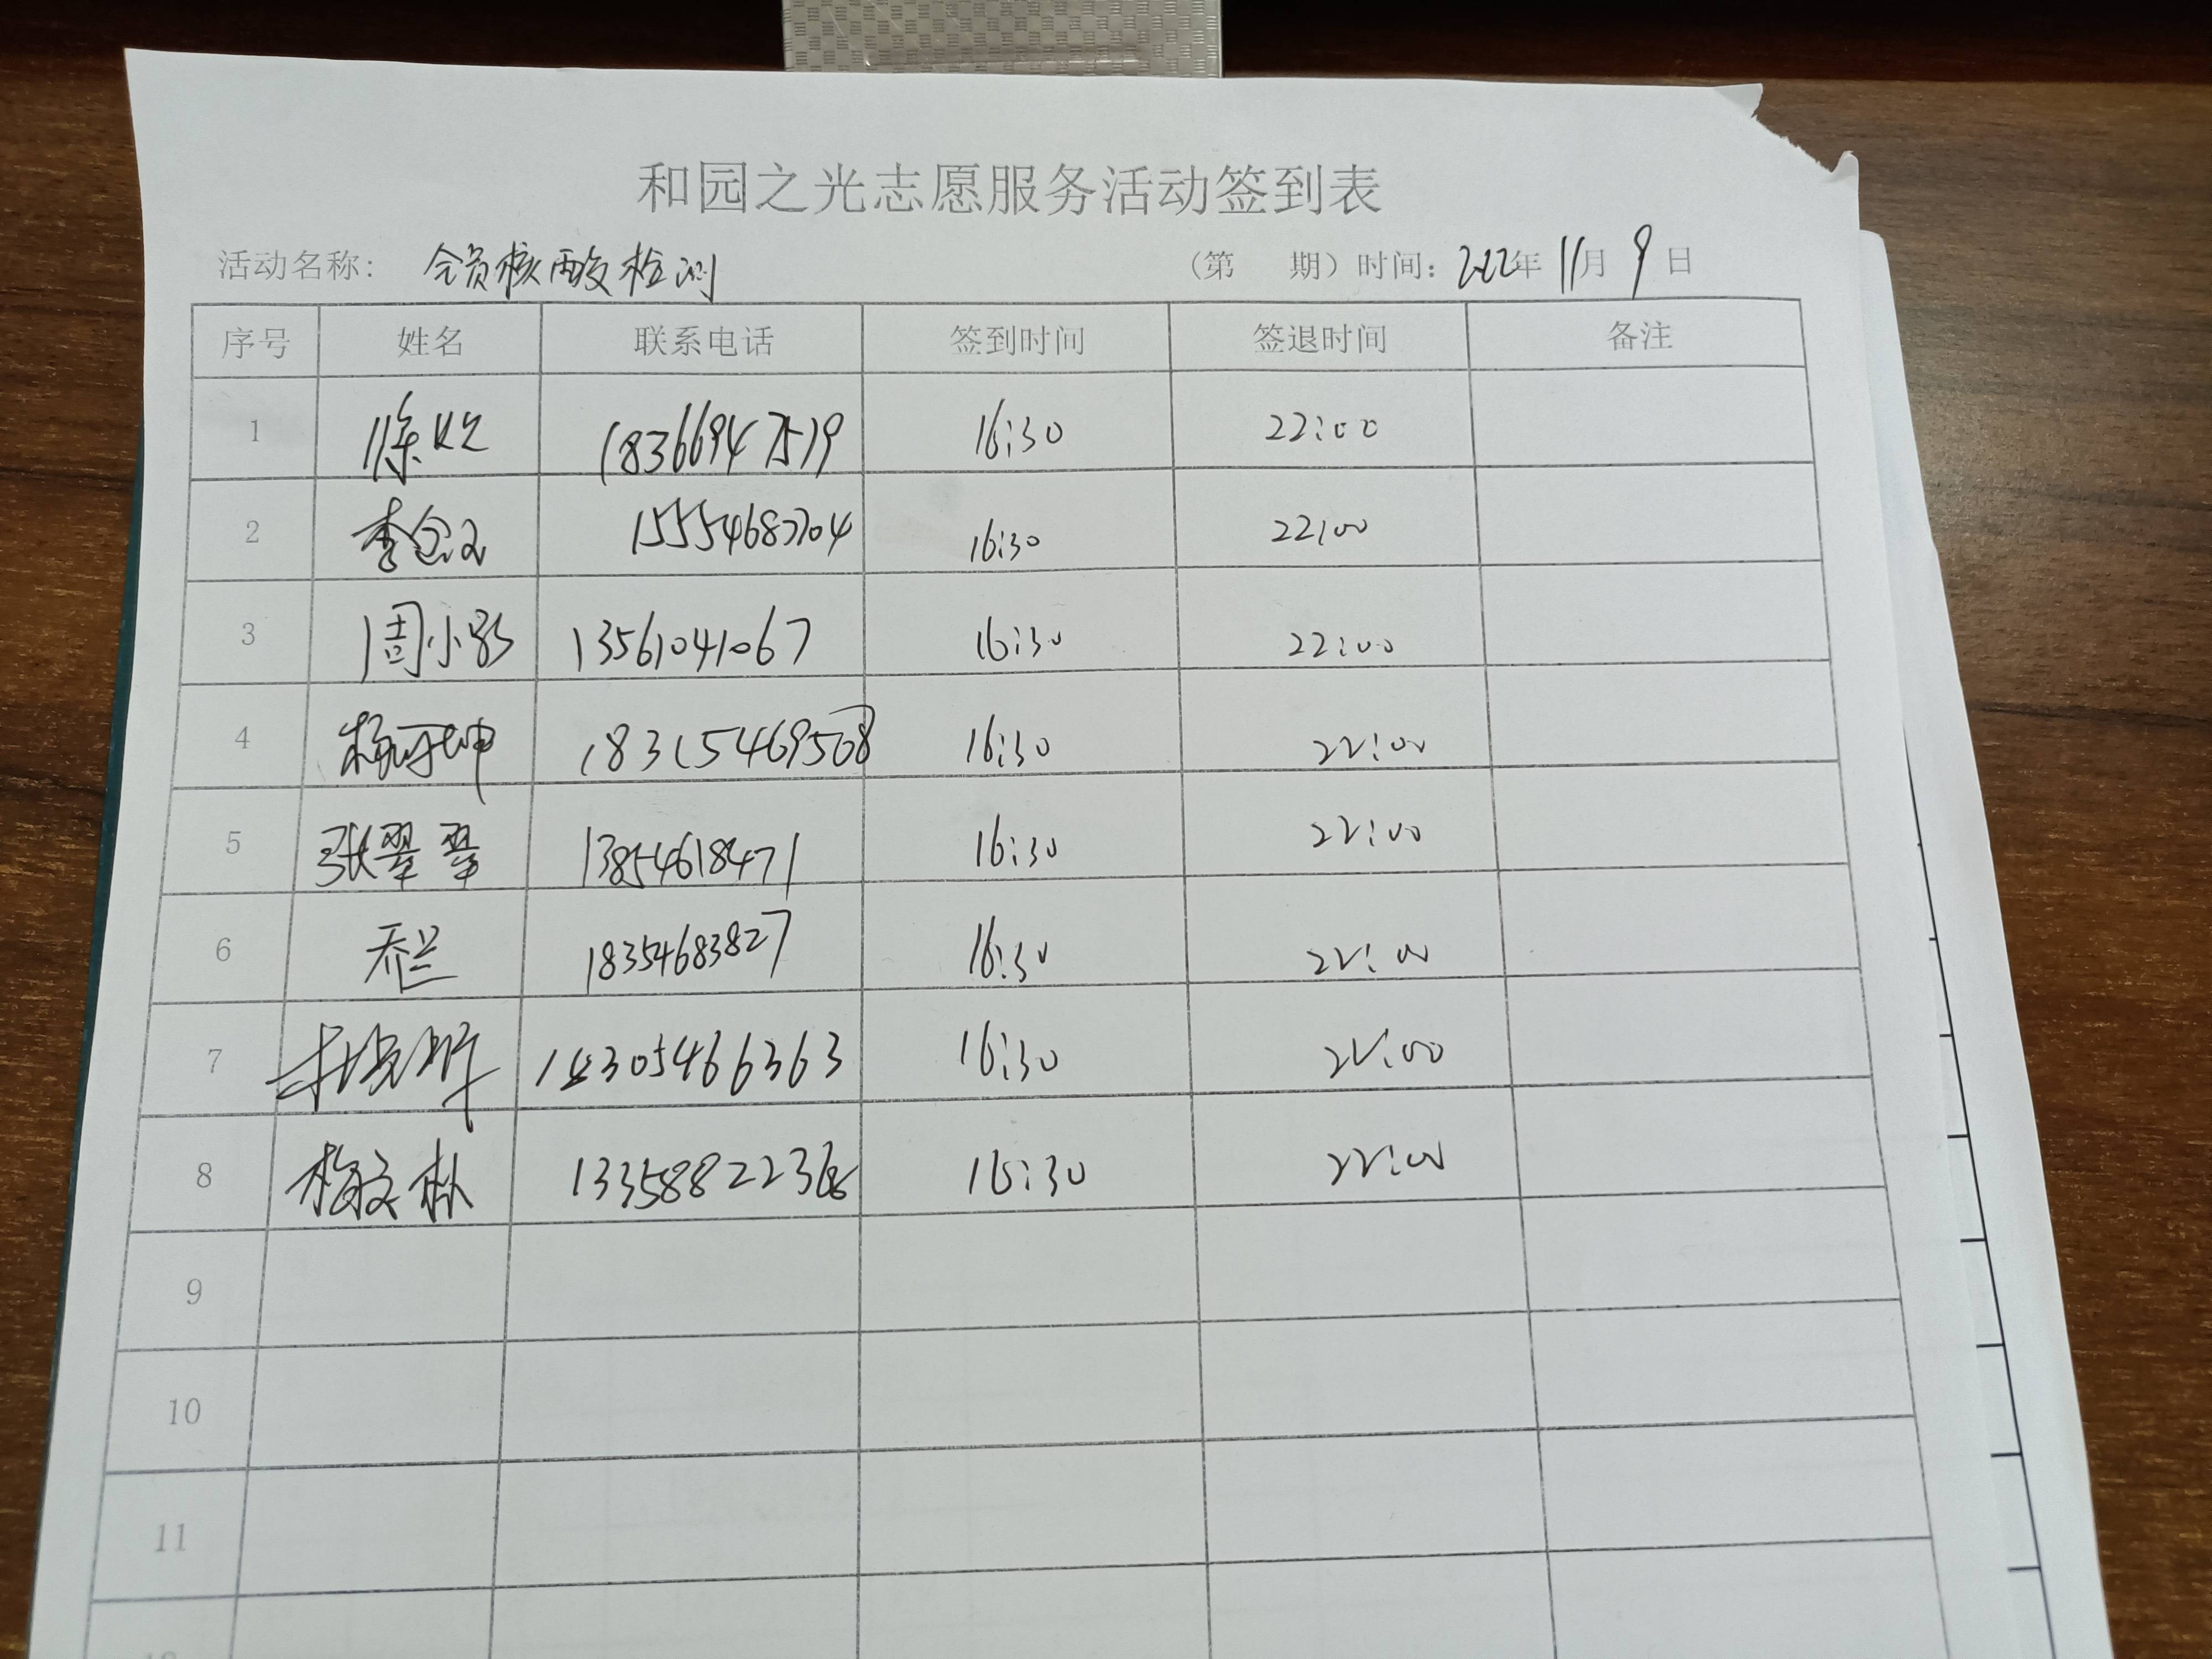 和园之光志愿服务活动签到表
活动名称： 全员核酸检测 （第 期）时间：2022年 11月 9日
序号 姓名 联系电话 签到时间 签退时间 备注
1 徐 18366947519 16:30 22:00
2 李 16:30 22:00
3 周小 13561041067 16:30 22:00
4 杨冠坤 18315469508 16:30 22:00
5 张翠翠 13854618471 16:30 22:00
6 乔兰 18354683827 16:30 22:00
7 16:30 22:00
8 梅文 16:30 22:00
9
10
11